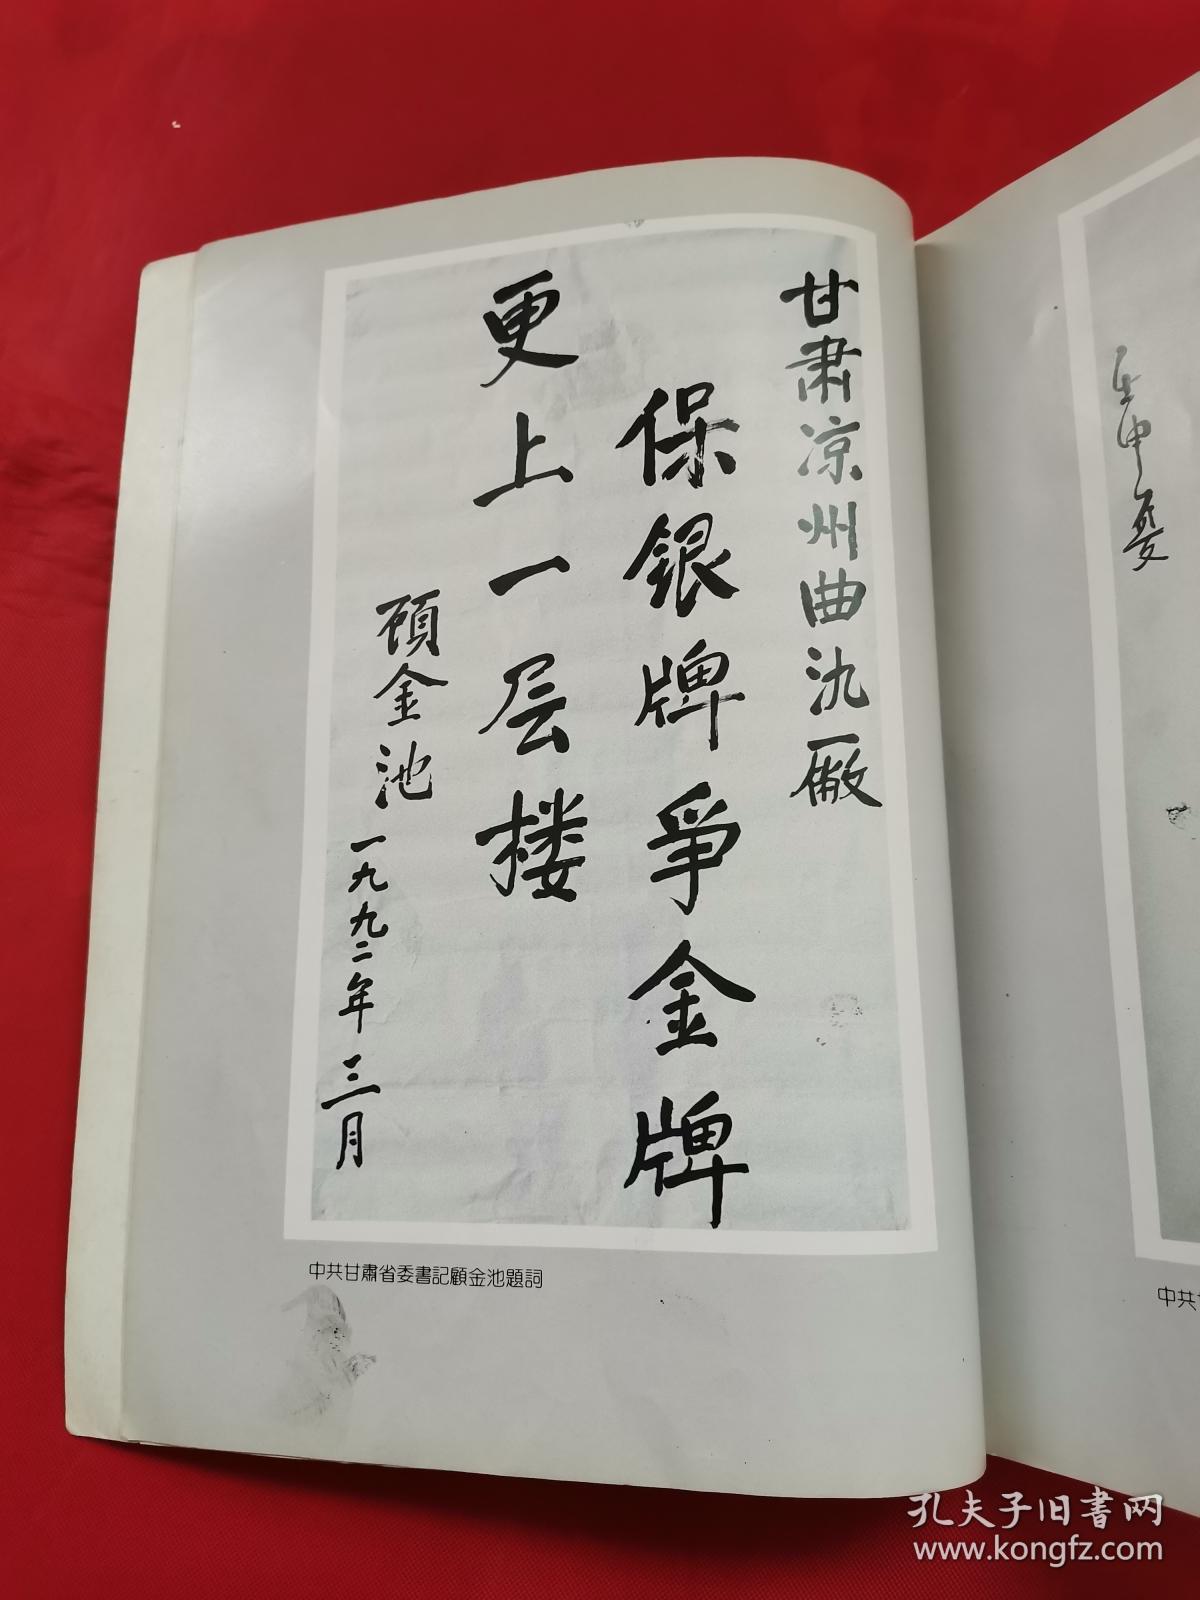 甘肃凉州曲氿厰
保银牌爭金牌
更上一层楼
顾金池
一九九二年三月
中共甘肅省委書記顧金池題詞
壬申夏
中共
孔夫子旧书网
www.kongfz.com